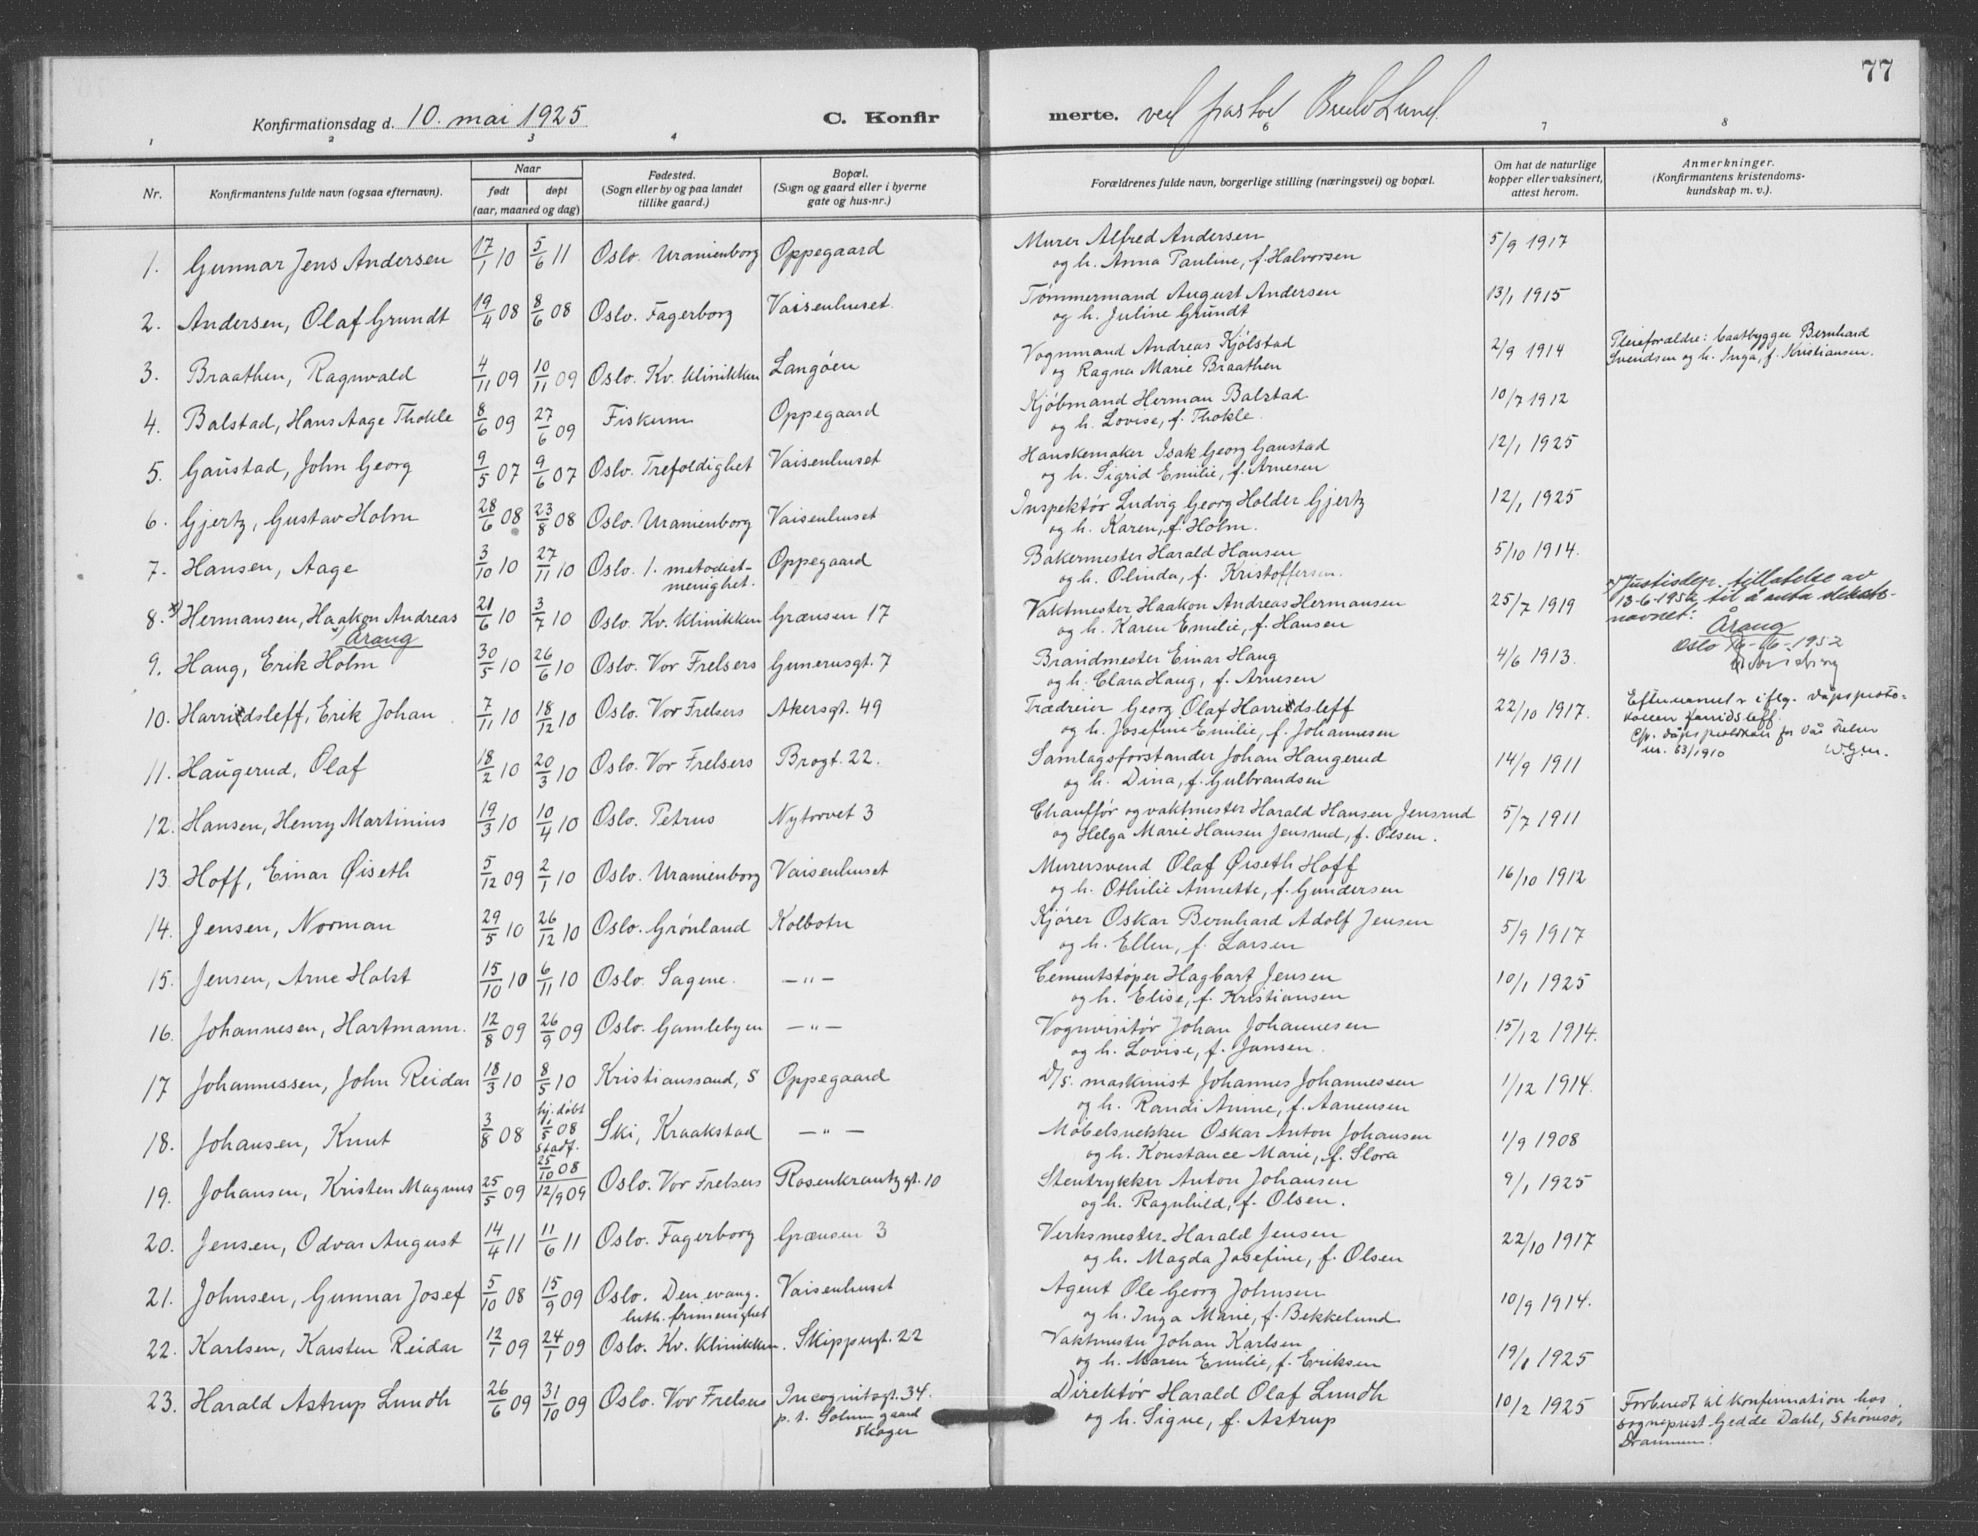 77
Konfirmationsdag d. 10. mai 1925 C. Konfirmerte. ved pastor Lund.
1 2 3 4 6 7 8
Nr. | Konfirmantens fulde navn (ogsaa efternavn). | Naar født | døpt (aar, maaned og dag) | Fødested. (Sogn eller by og paa landet tillike gaard.) | Bopæl. (Sogn og gaard eller i byerne gate og hus-nr.) | Forældrenes fulde navn, borgerlige stilling (næringsvei) og bopæl. | Om hat de naturlige kopper eller vaksinert, attest herom. | Anmerkninger. (Konfirmantens kristendomskundskap m. v.).
1. Gunnar Jens Andersen 17/1 10 5/6 11 Oslo. Uranienborg Oppegaard Murer Alfred Andersen 5/9 1917
og h. Anna Pauline, f. Halvorsen
2. Andersen, Olaf Grundt 19/4 08 8/6 08 Oslo. Fagerborg Vaisenhuset. Tømmermand August Andersen 13/1 1915
og h. Juline Grundt
3. Braathen, Ragnvald 4/11 09 10/11 09 Oslo. Kv. klinikken Langøen Vognmand Andreas Kjølstad 2/9 1914 Pleieforældre: baatbygger Bernhard
og Ragna Marie Braathen Svendsen og h. Inga, f. Kristiansen.
4. Balstad, Hans Aage Thokle 8/6 09 27/6 09 Fiskum Oppegaard Kjøbmand Herman Balstad 10/7 1912
og h. Lovise, f. Thokle.
5. Gaustad, John Georg 9/5 07 9/6 07 Oslo. Trefoldighet Vaisenhuset Hanskemaker Isak Georg Gaustad 12/1 1925
og h. Sigrid Emilie, f. Arnesen
6. Gjertz, Gustav Holm 28/6 08 23/8 08 Oslo. Uranienborg Vaisenhuset Inspektør Ludvig Georg Holder Gjertz 12/1 1925
og h. Karen, f. Holm.
7. Hansen, Aage 3/10 10 27/11 10 Oslo. 1. metodist- Oppegaard Bakermester Harald Hansen 5/10 1914.
menighet. og h. Olinda, f. Kristoffersen.
8. x) Hermansen, Haakon Andreas 21/6 10 3/7 10 Oslo. Kv. klinikken Grænsen 17 Vaktmester Haakon Andreas Hermansen 25/7 1919 x) Justisdep. tillatelse av
x) Årang og h. Karen Emilie, f. Hansen 13-6-1952 til å anta slekts-
navnet: Årang
Oslo 16-6-1952
9. Haug, Erik Holm 30/5 10 26/6 10 Oslo. Vor Frelsers Gunerusgt. 7 Brandmester Einar Haug 4/6 1913.
og h. Clara Haug, f. Arnesen
10. Harridsleff, Erik Johan 7/11 10 18/12 10 Oslo. Vor Frelsers Akersgt. 49 Trædreier Georg Olaf Harridsleff 22/10 1917. Efternavnet er iflg. dåpsproto-
og h. Josefine Emilie, f. Johannesen kollen Harridsleff.
Cfr. dåpsprotokoll for Vår Frelser
nr. 63/1910 W.G.m.
11. Haugerud, Olaf 18/2 10 20/3 10 Oslo. Vor Frelsers Brogt. 22. Samlagsforstander Johan Haugerud 14/9 1911
og h. Dina, f. Gulbrandsen
12. Hansen, Henry Martinius 19/3 10 10/4 10 Oslo. Petrus Nytorvet 3 Chauffør og vaktmester Harald Hansen Jensrud 5/7 1911
og Helga Marie Hansen Jensrud, f. Olsen.
13. Hoff, Einar Øiseth 5/12 09 2/1 10 Oslo. Uranienborg Vaisenhuset Murersvend Olaf Øiseth Hoff 16/10 1912
og h. Othilie Annette, f. Gundersen
14. Jensen, Norman 29/5 10 26/12 10 Oslo. Grønland Kolbotn Kjører Oskar Bernhard Adolf Jensen 5/9 1917
og h. Ellen, f. Larsen
15. Jensen, Arne Holst 15/10 10 6/11 10 Oslo. Sagene. —"— Cementstøper Hagbart Jensen 10/1 1925
og h. Elise, f. Kristiansen
16. Johannesen, Hartmann. 12/8 09 26/9 09 Oslo. Gamlebyen —"— Vognvisitør Johan Johannesen 15/12 1914.
og h. Lovise, f. Jansen.
17 Johannessen, John Reidar 18/3 10 8/5 10 Kristianssand, S Oppegaard D/s. maskinist Johannes Johannessen 1/12 1914.
og h. Randi Anine, f. Aanensen
18. Johansen, Knut 3/8 08 hj. døbt 08 stadf. 25/10 08 Ski, Kraakstad —"— Møbelsnekker Oskar Anton Johansen 1/9 1908
og h. Konstance Marie, f. Slora
19. Johansen, Kristen Magnus 25/5 09 12/9 09 Oslo. Vor Frelsers Rosenkrantzgt. 10 Stentrykker Anton Johansen 9/1 1925
og h. Ragnhild, f. Olsen.
20. Jensen, Odvar August 14/4 11 11/6 11 Oslo. Fagerborg Grænsen 3 Verksmester Harald Jensen 22/10 1917
og h. Magda Josefine, f. Olsen
21. Johnsen, Gunnar Josef 5/10 08 15/9 09 Oslo. Den evang. Vaisenhuset Agent Ole Georg Johnsen 10/9 1914.
luth. frimenighet og h. Inga Marie, f. Bekkelund
22. Karlsen, Karsten Reidar 12/1 09 24/1 09 Oslo. Kv. klinikken. Skippergt. 22 Vaktmester Johan Karlsen 1925
og h. Maren Emilie, f. Eriksen
23. Harald Astrup Lundh 26/6 09 31/10 09 Oslo. Vor Frelsers Incognitogt. 34. Direktør Harald Olaf Lundh 10/2 1925 Forberedt til konfirmation hos
p. t. Solum gaard og h. Signe, f. Astrup sogneprest Gedde Dahl, Strømsø,
Skoger Drammen.